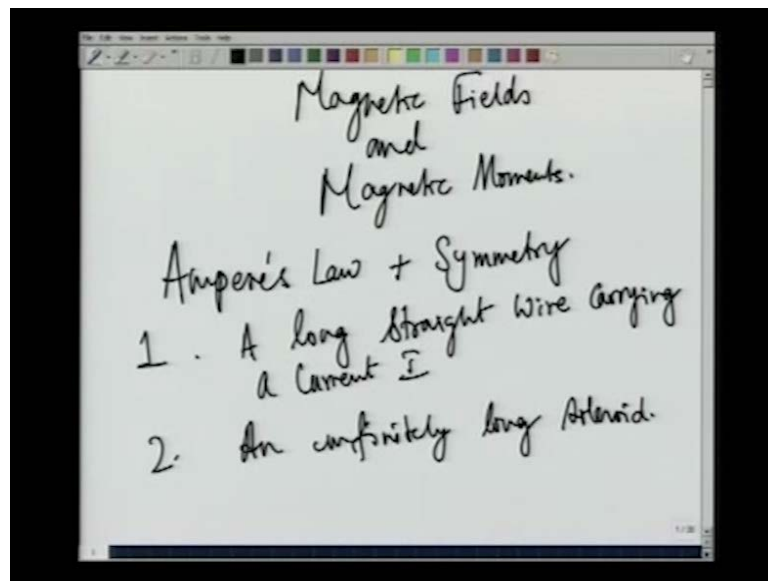 File Edit View Insert Actions Tools Help
Magnetic Fields
and
Magnetic Moments.
Ampere's Law + Symmetry
1. A long Straight Wire Carrying
a Current I
2. An infinitely long solenoid.
1/20